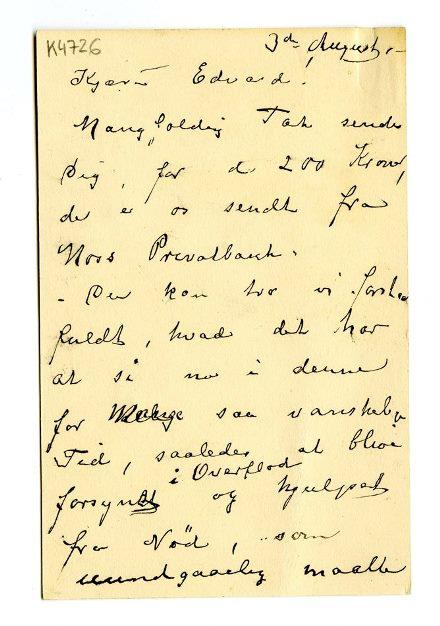 K4726
3de August.
Kjære Edvard!
Mangfoldig Tak sendes
Dig, for de 200 Kroner,
de er os sendt fra
Norsk Privatbank.
- Du kan tro vi forstaa
fuldt, hvad det har
at si nu i denne
for Mange saa vanskelige
Tid, saaledes at blive
i Overflod
forsynet og hjulpet
fra Nød, som
uundgaaelig maatte